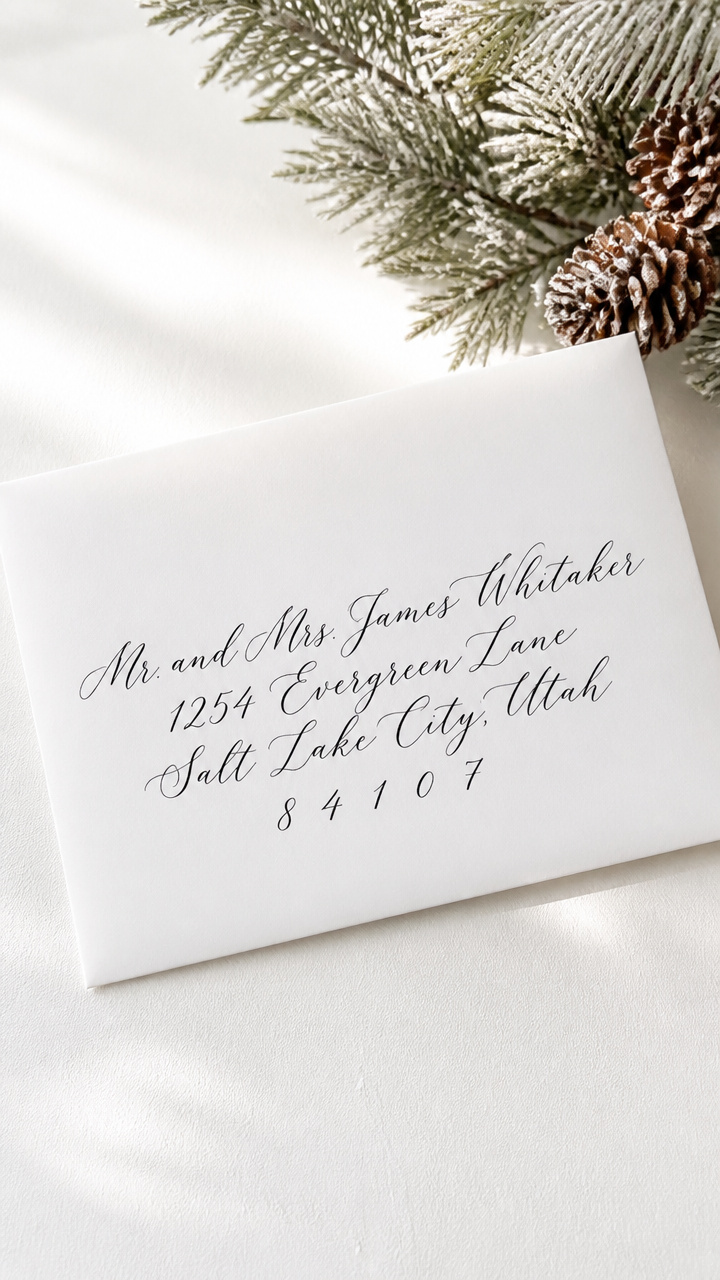 Mr. and Mrs. James Whitaker
1254 Evergreen Lane
Salt Lake City, Utah
8 4 1 0 7